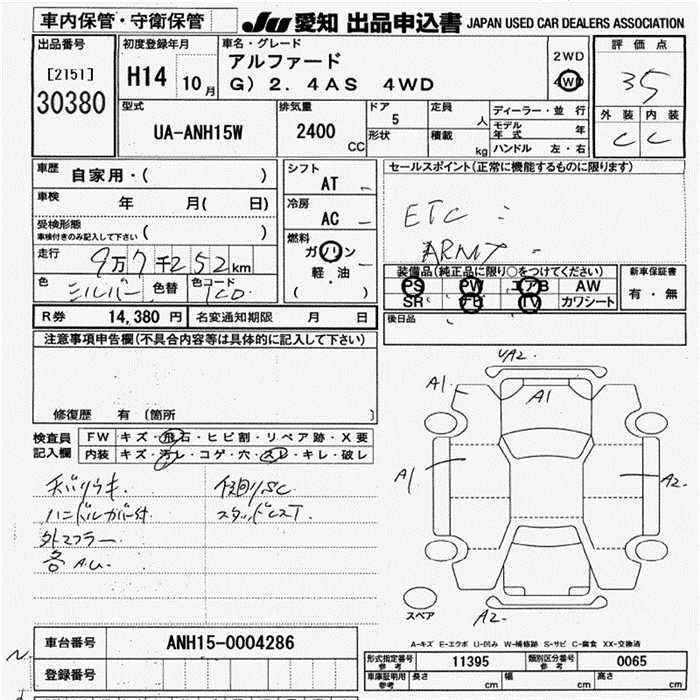 車内保管・守衛保管
JU 愛知 出品申込書 JAPAN USED CAR DEALERS ASSOCIATION
出品番号 初度登録年月 車名・グレード 評価点
[2151] H14 10月 アルファード 2WD
30380 G) 2. 4AS 4WD 4WD 35
型式 排気量 ドア 定員 ディーラー・並行 外装 内装
UA-ANH15W 2400 CC 5 人 モデル年式 年 C C
形状 積載 kg ハンドル 左・右
車歴 自家用・( ) シフト AT セールスポイント(正常に機能するものに限ります)
車検 年 月( 日) 冷房 AC ETC
受検形態
車検付きのみ記入して下さい ( ) 燃料 ガソリン
走行 9万7千252km 軽・油 装備品(純正品に限り○をつけてください) 新車保証書
色 シルバー 色替 色コード 1C0 ( ) PS PW エアB AW 有・無
SR ナビ TV カワシート
R券 14,380 円 名変通知期限 月 日 後日品
注意事項申告欄(不具合内容等は具体的に記入して下さい)
修復歴 有 〔箇所 〕
検査員 FW キズ・飛石・ヒビ割・リペア跡・X要
記入欄 内装 キズ・汚レ・コゲ・穴・スレ・キレ・破レ
ハンドルカバー付 スタッドレスT.
外マフラー
各A.U.
A2
A1 A1
A1 A2
A2
スペア
A-キズ E-エクボ U-凹み W-補修跡 S-サビ C-腐食 XX-交換済
車台番号 ANH15-0004286
登録番号
形式指定番号 参考 11395 類別区分番号 参考 0065
車庫証明用 参考 長さ cm 幅 cm 高さ cm